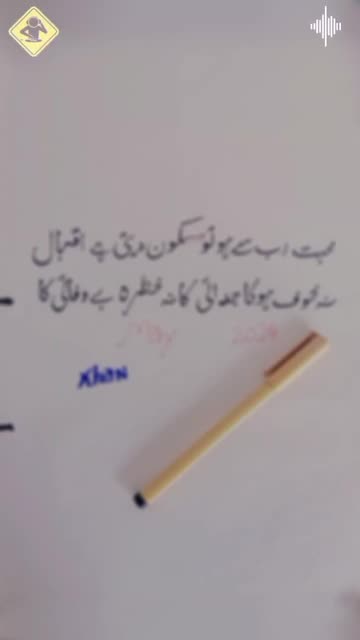 محبت اب سے ہو تو سکون دیتی ہے اقبال
نہ خوف ہو گا جدائی کا نہ خطرہ بے وفائی کا
May 2024
Khan